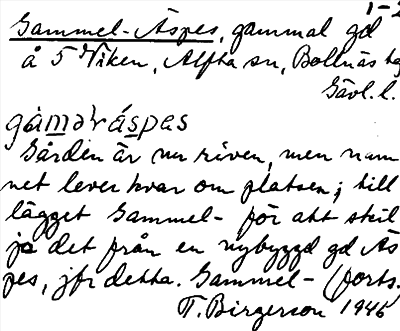 1-2
Gammel-Äspes, gammal gd
å 5 Viken, Alfta sn, Bollnäs
Gävl. l.
gåməlräspes
Gården är nu riven, men nam
net lever kvar om platsen; till
lägget Gammel- för att skil
ja det från en nybyggd gd Äs
pes, jfr detta. Gammel- (forts.
T. Birgerson 1946